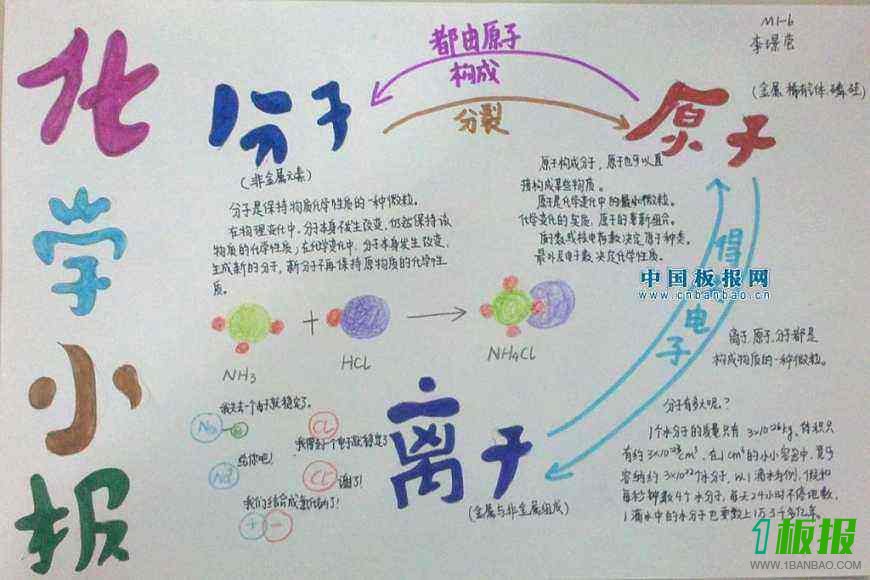 化学小报
M1-6
李璟莹
都由原子
构成
分裂
分子
(非金属元素)
原子
(金属、稀有气体、磷、硅)
分子是保持物质化学性质的一种微粒。
在物理变化中,分子本身不发生改变,仍然保持该
物质的化学性质;在化学变化中,分子本身发生改变,
生成新的分子,新分子不再保持原物质的化学性
质。
原子构成分子,原子也可以直
接构成某些物质。
原子是化学变化中的最小微粒。
化学变化的实质:原子的重新组合。
质子数或核电荷数决定原子种类。
最外层电子数决定化学性质。
中国板报网
www.cnbanbao.cn
得
电子
NH3
+
HCL
NH4CL
离子
(金属与非金属组成)
离子、原子、分子都是
构成物质的一种微粒。
我失去一个电子就稳定了
Na
e
CL
我得到一个电子就稳定了
给你吧!
Na+
CL-
谢了!
我们结合成氯化钠了!
+ -
分子有多大呢?
1个水分子的质量只有 3×10-26kg,体积只
有约 3×10-23cm3,在1cm3的小小容器中,竟可
容纳约 3×1022个水分子,以1滴水为例,假如
每秒钟数4个水分子,每天24小时不停地数,
1滴水中的水分子也要数上1万3千多亿年。
1板报
WWW.1BANBAO.COM